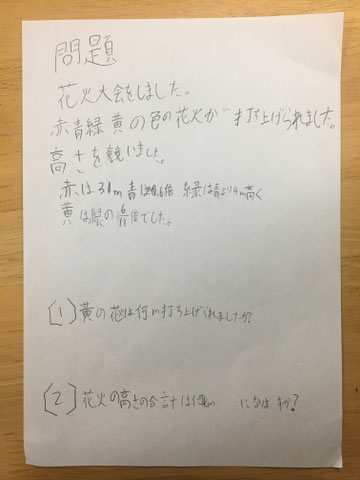 問題
花火大会をしました。
赤青緑黄の色の花火が打ち上げられました。
高さを競いました
赤は31m 青は 倍 緑は青より4m高く
黄は緑の6/11倍でした。
[1] 黄の花は何m打ち上げられましたか?
[2] 花火の高さの合計は になりますか?